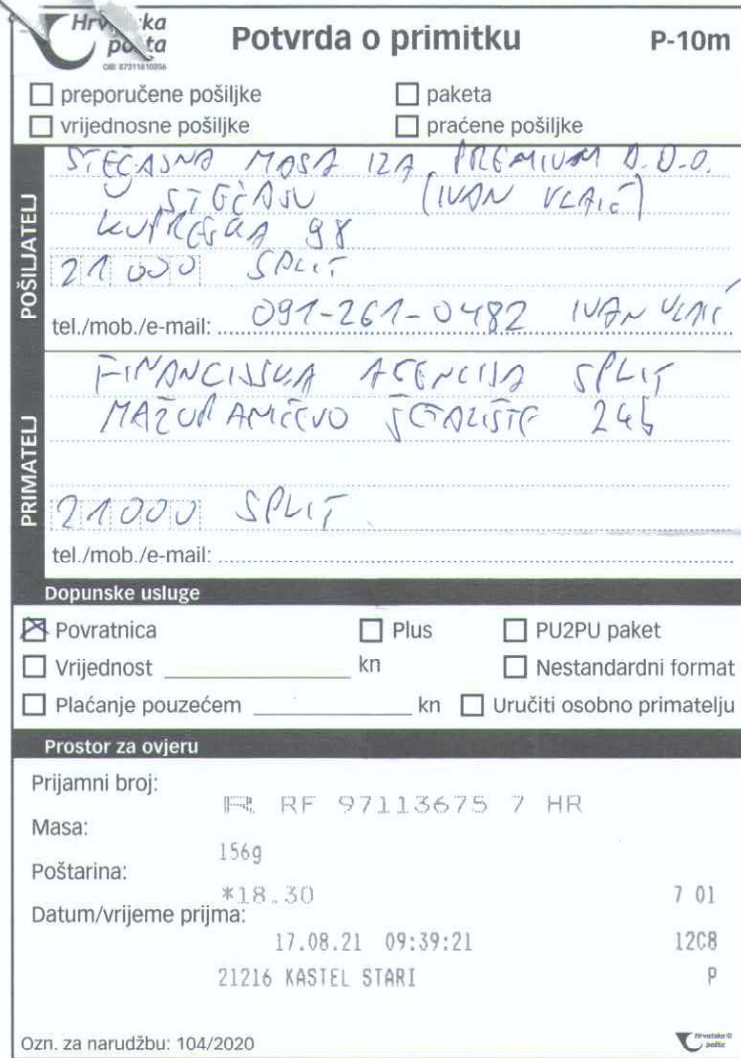 Hrvatska
pošta
OIB: 87311810356
Potvrda o primitku
P-10m
preporučene pošiljke
paketa
vrijednosne pošiljke
praćene pošiljke
POŠILJATELJ
STEČAJNA MASA IZA PREMIUM D.O.O.
U STEČAJU (IVAN VLAIĆ)
KUPREŠKA 98
21000 SPLIT
tel./mob./e-mail: 091-261-0482 IVAN VLAIĆ
PRIMATELJ
FINANCIJSKA AGENCIJA SPLIT
MAŽURANIĆEVO ŠETALIŠTE 24b
21000 SPLIT
tel./mob./e-mail:
Dopunske usluge
Povratnica
Plus
PU2PU paket
Vrijednost kn
Nestandardni format
Plaćanje pouzećem kn
Uručiti osobno primatelju
Prostor za ovjeru
Prijamni broj:
R RF 97113675 7 HR
Masa:
156g
Poštarina:
*18.30 7 01
Datum/vrijeme prijma:
17.08.21 09:39:21 12C8
21216 KASTEL STARI P
Ozn. za narudžbu: 104/2020
Hrvatska
pošta